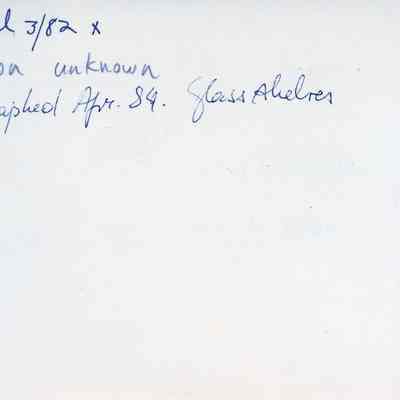 l 3/82 x
on unknown
aphed Apr. 84. Glass shelves